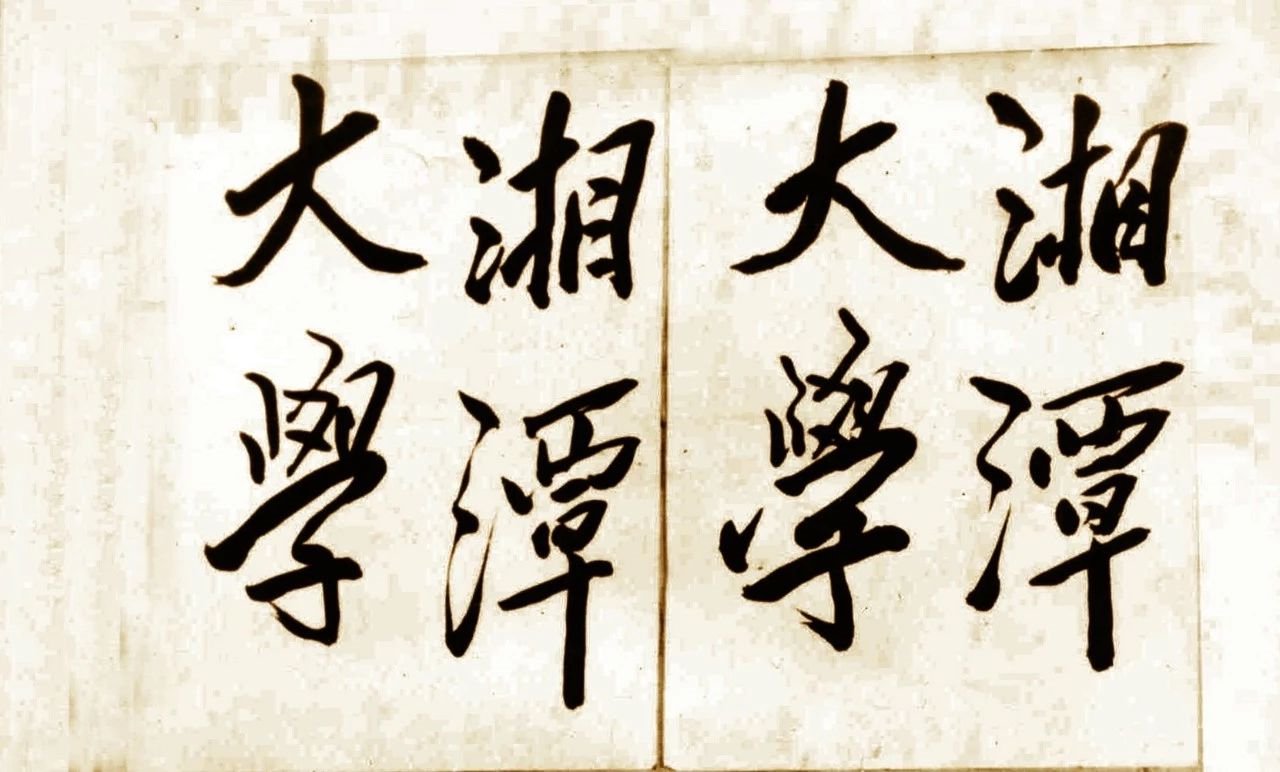 湘潭
大學
湘潭
大學